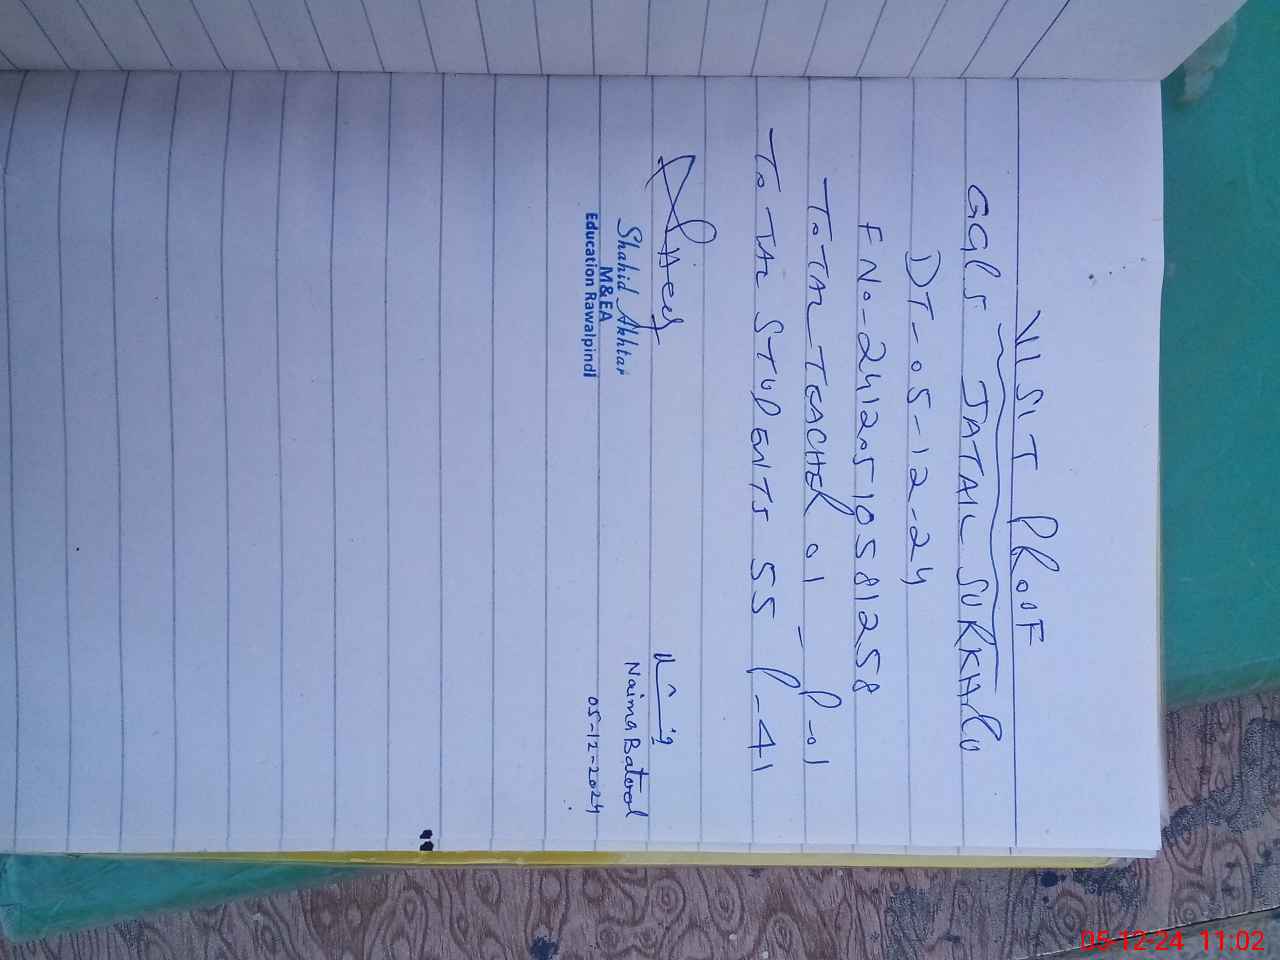 VISIT PROOF
GGPS JATAL SURKHRU
DT-05-12-24
F No-24120510581258
TOTAL TEACHER 01 - P-01
TOTAL STUDENTS 55 P-41
Shahid Akhtar
M&EA
Education Rawalpindi
Naima Batool
05-12-2024
05-12-24 11:02